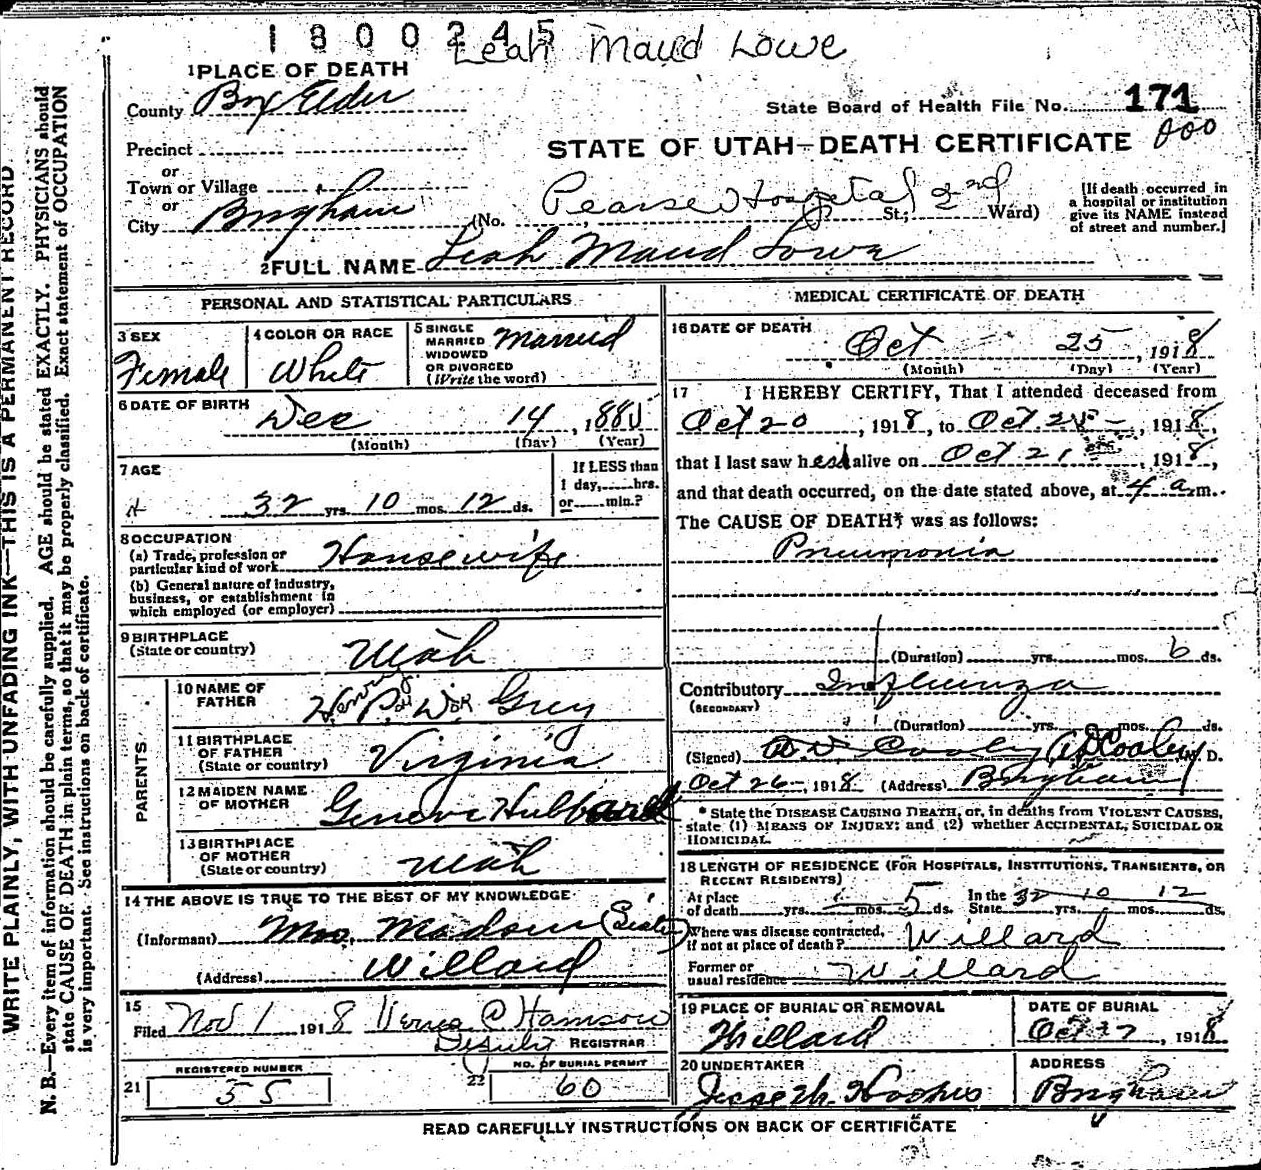 1800245
Leah Maud Lowe
1 PLACE OF DEATH
County Box Elder
State Board of Health File No. 171
STATE OF UTAH—DEATH CERTIFICATE
Precinct
or
Town or Village
or
City Brigham (No. Pearse Hospital St.; 2nd Ward)
[If death occurred in
a hospital or institution
give its NAME instead
of street and number.]
2 FULL NAME Leah Maud Lowe
PERSONAL AND STATISTICAL PARTICULARS
3 SEX
Female
4 COLOR OR RACE
White
5 SINGLE
MARRIED
WIDOWED
OR DIVORCED
(Write the word)
Married
6 DATE OF BIRTH
Dec 14, 1885
(Month) (Day) (Year)
7 AGE
32 yrs. 10 mos. 12 ds.
If LESS than
1 day, hrs.
or min.?
8 OCCUPATION
(a) Trade, profession or
particular kind of work Housewife
(b) General nature of industry,
business, or establishment in
which employed (or employer)
9 BIRTHPLACE
(State or country)
Utah
PARENTS
10 NAME OF
FATHER
Grey
11 BIRTHPLACE
OF FATHER
(State or country)
Virginia
12 MAIDEN NAME
OF MOTHER
Hubbard
13 BIRTHPLACE
OF MOTHER
(State or country)
Utah
14 THE ABOVE IS TRUE TO THE BEST OF MY KNOWLEDGE
(Informant) Mrs. Madsen (Sister)
(Address) Willard
15
Filed Nov 1 1918
REGISTRAR
21
REGISTERED NUMBER
55
22
NO. OF BURIAL PERMIT
60
MEDICAL CERTIFICATE OF DEATH
16 DATE OF DEATH
Oct 25, 1918
(Month) (Day) (Year)
17 I HEREBY CERTIFY, That I attended deceased from
Oct 20, 1918, to Oct 25, 1918,
that I last saw her alive on Oct 21, 1918,
and that death occurred, on the date stated above, at 4 a m.
The CAUSE OF DEATH* was as follows:
Pneumonia
(Duration) yrs. mos. 6 ds.
Contributory Influenza
(SECONDARY)
(Duration) yrs. mos. ds.
(Signed) Cooley M. D.
Oct 26, 1918 (Address) Brigham
* State the DISEASE CAUSING DEATH, or, in deaths from VIOLENT CAUSES,
state (1) MEANS OF INJURY; and (2) whether ACCIDENTAL, SUICIDAL OR
HOMICIDAL.
18 LENGTH OF RESIDENCE (FOR HOSPITALS, INSTITUTIONS, TRANSIENTS, OR
RECENT RESIDENTS)
At place
of death yrs. mos. 5 ds.
In the
State 32 yrs. 10 mos. 12 ds.
Where was disease contracted,
if not at place of death? Willard
Former or
usual residence Willard
19 PLACE OF BURIAL OR REMOVAL
Willard
DATE OF BURIAL
Oct 27, 1918
20 UNDERTAKER
ADDRESS
Brigham
READ CAREFULLY INSTRUCTIONS ON BACK OF CERTIFICATE
WRITE PLAINLY, WITH UNFADING INK—THIS IS A PERMANENT RECORD
N. B.—Every item of information should be carefully supplied. AGE should be stated EXACTLY. PHYSICIANS should
state CAUSE OF DEATH in plain terms, so that it may be properly classified. Exact statement of OCCUPATION
is very important. See instructions on back of certificate.